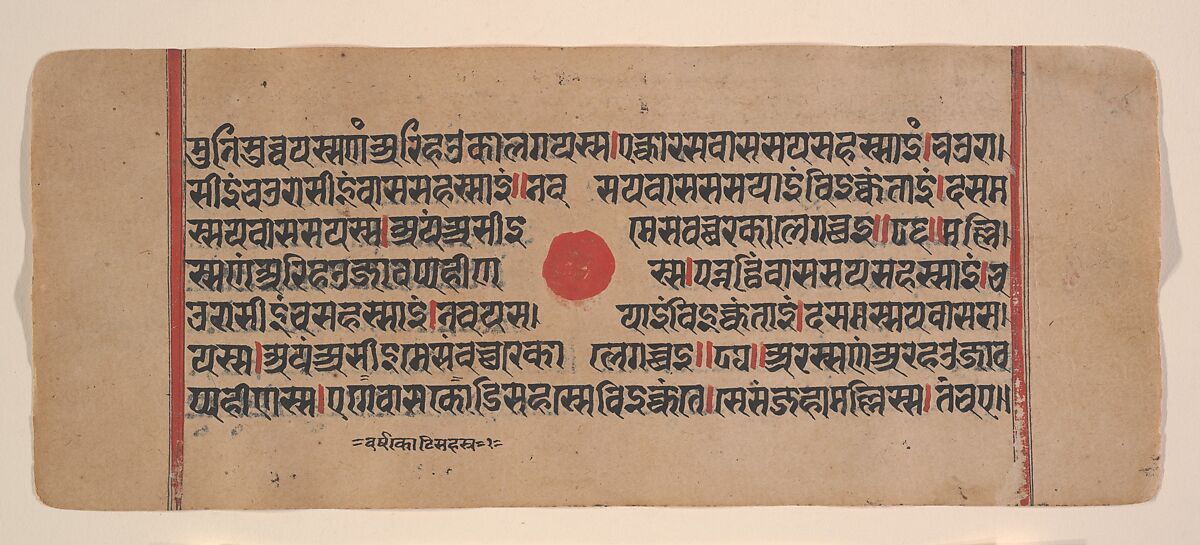 मुनिसुव्वयस्सणं अरिहउकालगयस्स।एक्कारसवाससयसहस्साइं।चउरा।
सीइंचउरासीइंवाससहस्साइं॥नव सयवाससमयाइंविइक्कंताइं।दसम
स्सयवाससयस्स।अयंअसीइ मेसंवच्छरेकालेगच्छइ॥ ॥मल्लि।
स्सणंअरिहउजावप्पहीण स्स।पन्नट्ठिंवाससयसहस्साइं।च
उरासीइंचसहस्साइं।नवयस। याइंविइक्कंताइं।दसमस्सयवासस।
यस्स।अयंअसीइमेसंवच्छरेका लेगच्छइ॥ ॥अरस्सणंअरहउजाव
प्पहीणस्स।एगेवासकोडिसहस्सेविइक्कंते।सेसंजहामल्लिस्स।तंचए॥
वर्षकोटिसहस्र